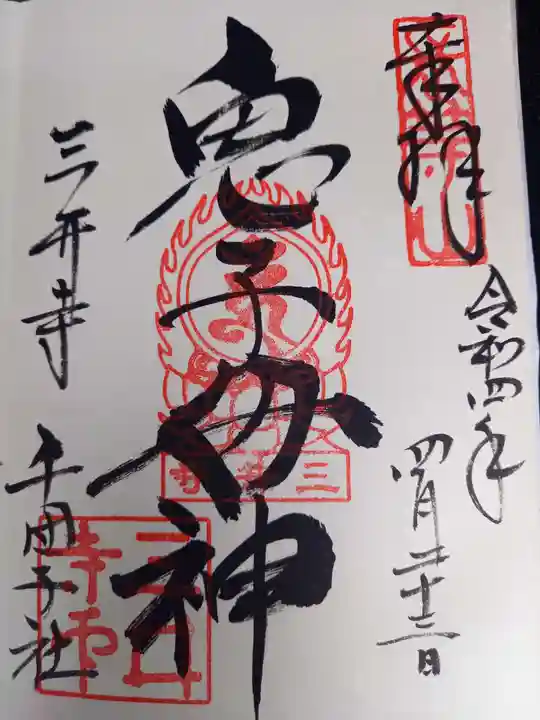 奉拝
令和四年
四月二十三日
鬼子母神
三井寺
千団子社
三井寺